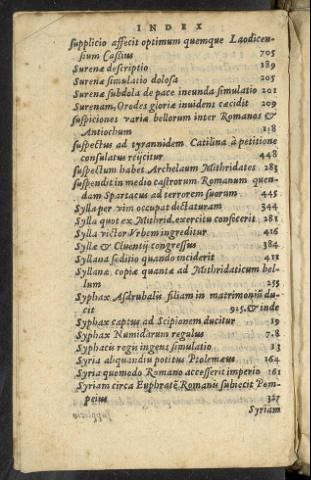 INDEX
supplicio affecit optimum quemque Laodicen-
sium Cassius 705
Surenæ descriptio 189
Surena simulatio dolosa 205
Surenæ subdola de pace ineunda simulatio 201
Surenam, Orodes gloriæ inuidens cæcidit 209
suspiciones variæ bellorum inter Romanos &
Antiochum 118
suspectus ad tyrannidem Catilina à petitione
consulatus reijcitur 448
suspectum habet Archelaum Mithridates 283
suspendit in medio castrorum Romanum quen-
dam Spartacus ad terrorem suorum 445
Sylla per vim occupat dictaturam 344
Sylla quot ex Mithrid. exercitu confecerit 281
Sylla victor Vrbem ingreditur 416
Syllæ & Cluentij congressus 384
Syllana seditio quando inciderit 411
Syllanæ copiæ quantæ ad Mithridaticum bel-
lum 255
Syphax Asdrubalis filiam in matrimoniũ du-
cit 915. & inde
Syphax captus ad Scipionem ducitur 19
Syphax Numidarum regulus
Syphacis regis ingens simulatio 13
Syria aliquandiu potitus Ptolemæus 164
Syria quomodo Romano accesserit imperio 161
Syriam circa Euphratẽ Romanis subiecit Pom-
peius 327
Syriam